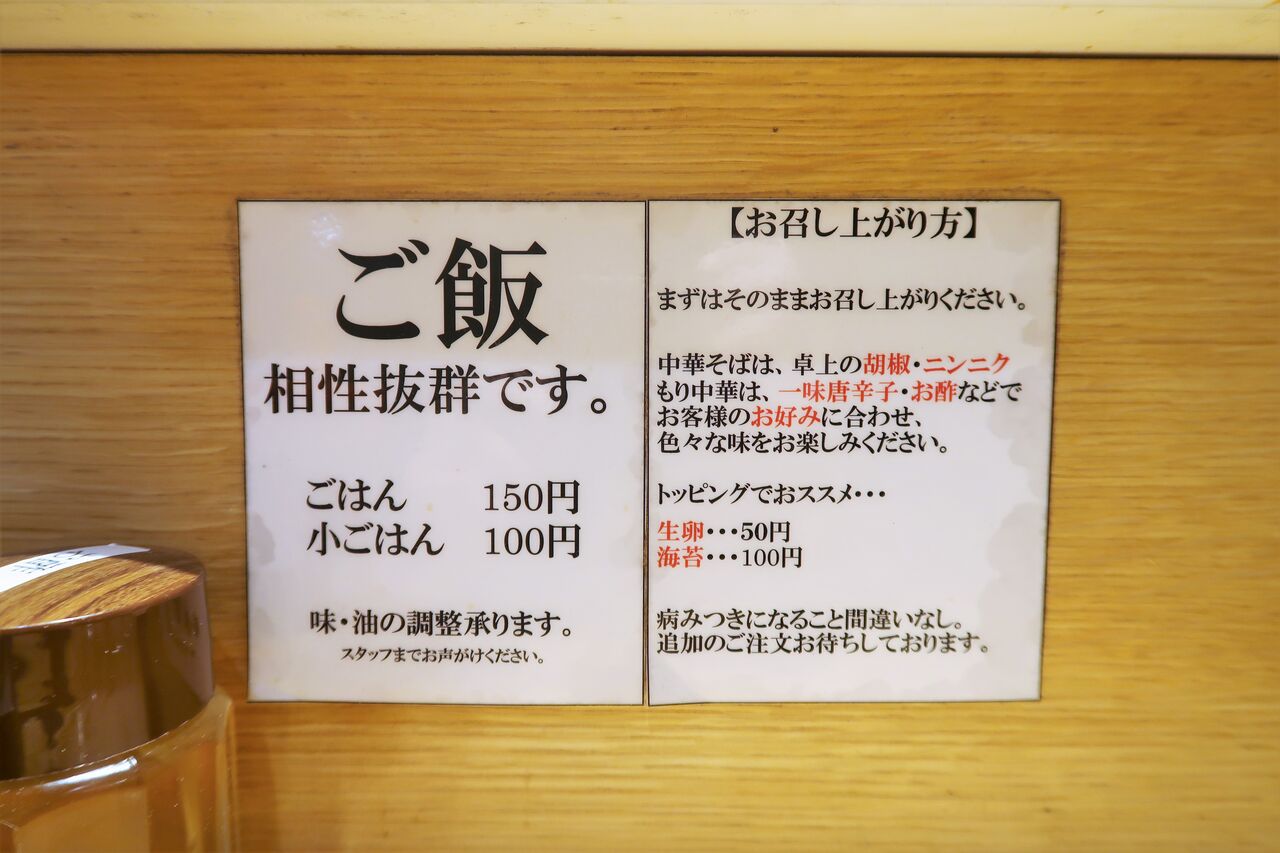 ご飯
相性抜群です。
ごはん 150円
小ごはん 100円
味・油の調整承ります。
スタッフまでお声がけください。
【お召し上がり方】
まずはそのままお召し上がりください。
中華そばは、卓上の胡椒・ニンニク
もり中華は、一味唐辛子・お酢などで
お客様のお好みに合わせ、
色々な味をお楽しみください。
トッピングでおススメ・・・
生卵・・・50円
海苔・・・100円
病みつきになること間違いなし。
追加のご注文お待ちしております。